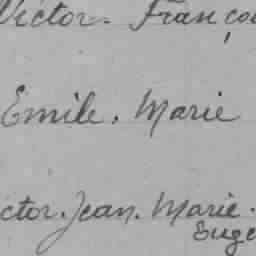 Victor. Franço
Emile. Marie
ctor. Jean. Marie.
Euge